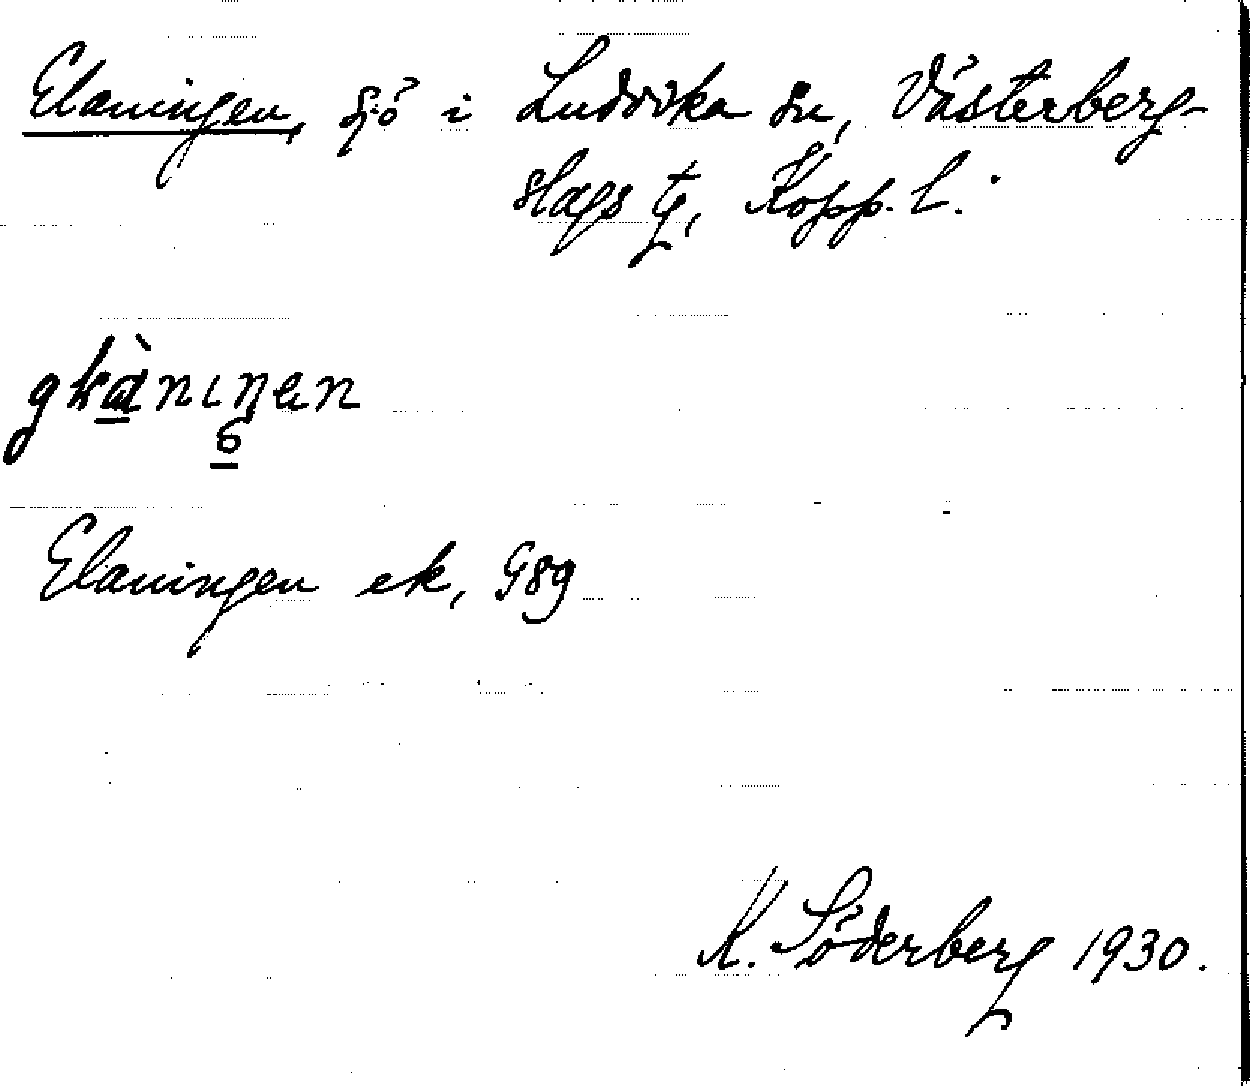 Elaningen, sjö i Ludvika sn, Västerberg-
slags tg, Kopp. l.
Elaningen ek, G89
K. Söderberg 1930.